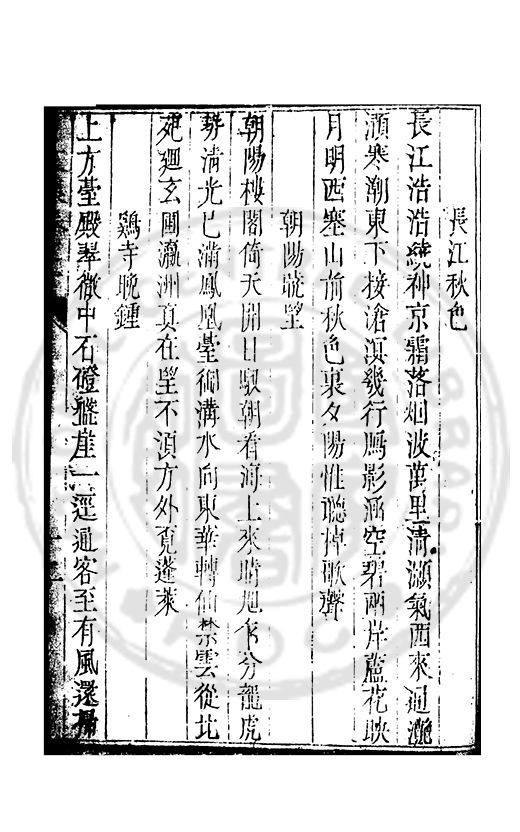 長江秋色
長江浩浩繞神京霜落烟波萬里清灝氣西來通灔
澦寒潮東下接滄溟幾行鴈影涵空碧兩岸藍花映
月明西塞山前秋色裏夕陽惟聽棹歌聲
朝陽曉望
朝陽樓閣倚天開日馭朝看海上來晴旭分龍虎
勢清光已滿鳳凰臺御溝水向東華轉仙禁雲從北
苑廻玄圃瀛洲真在望不須方外覔蓬萊
鷄寺晚鍾
上方臺殿翠微中石磴崖一逕通客至有風還